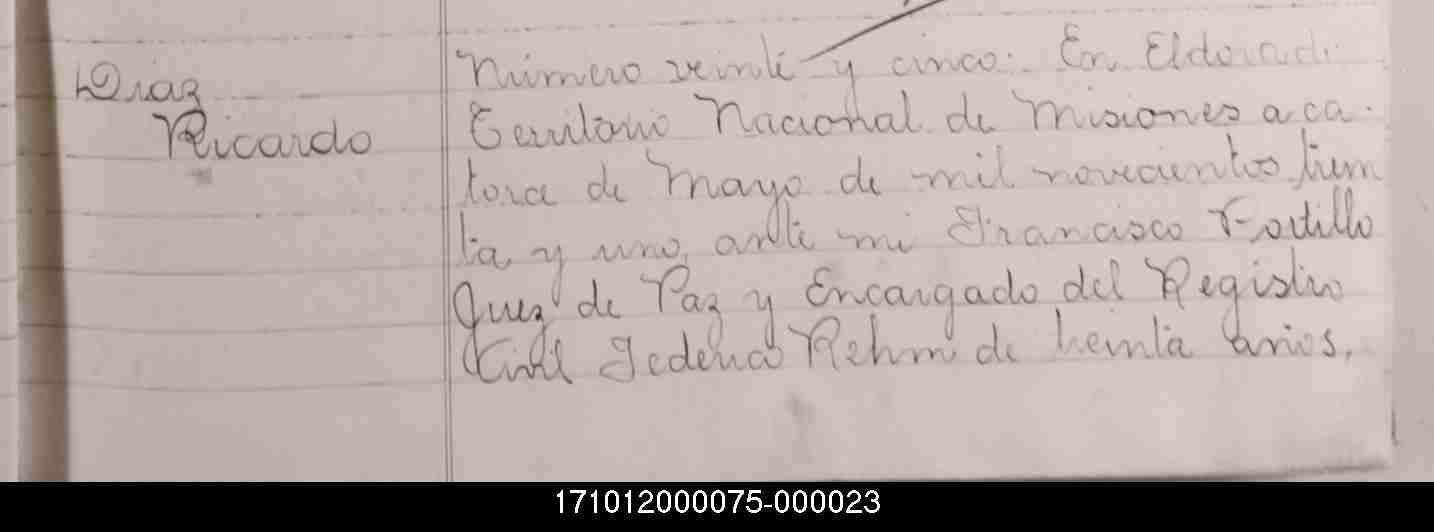 Diaz
Ricardo
Número veinte y cinco: En Eldorado
Territorio Nacional de Misiones a ca-
torce de Mayo de mil novecientos trein
ta y uno, ante mi Francisco Portillo
Juez de Paz y Encargado del Registro
Civil Federico Rehm de treinta años,
171012000075-000023